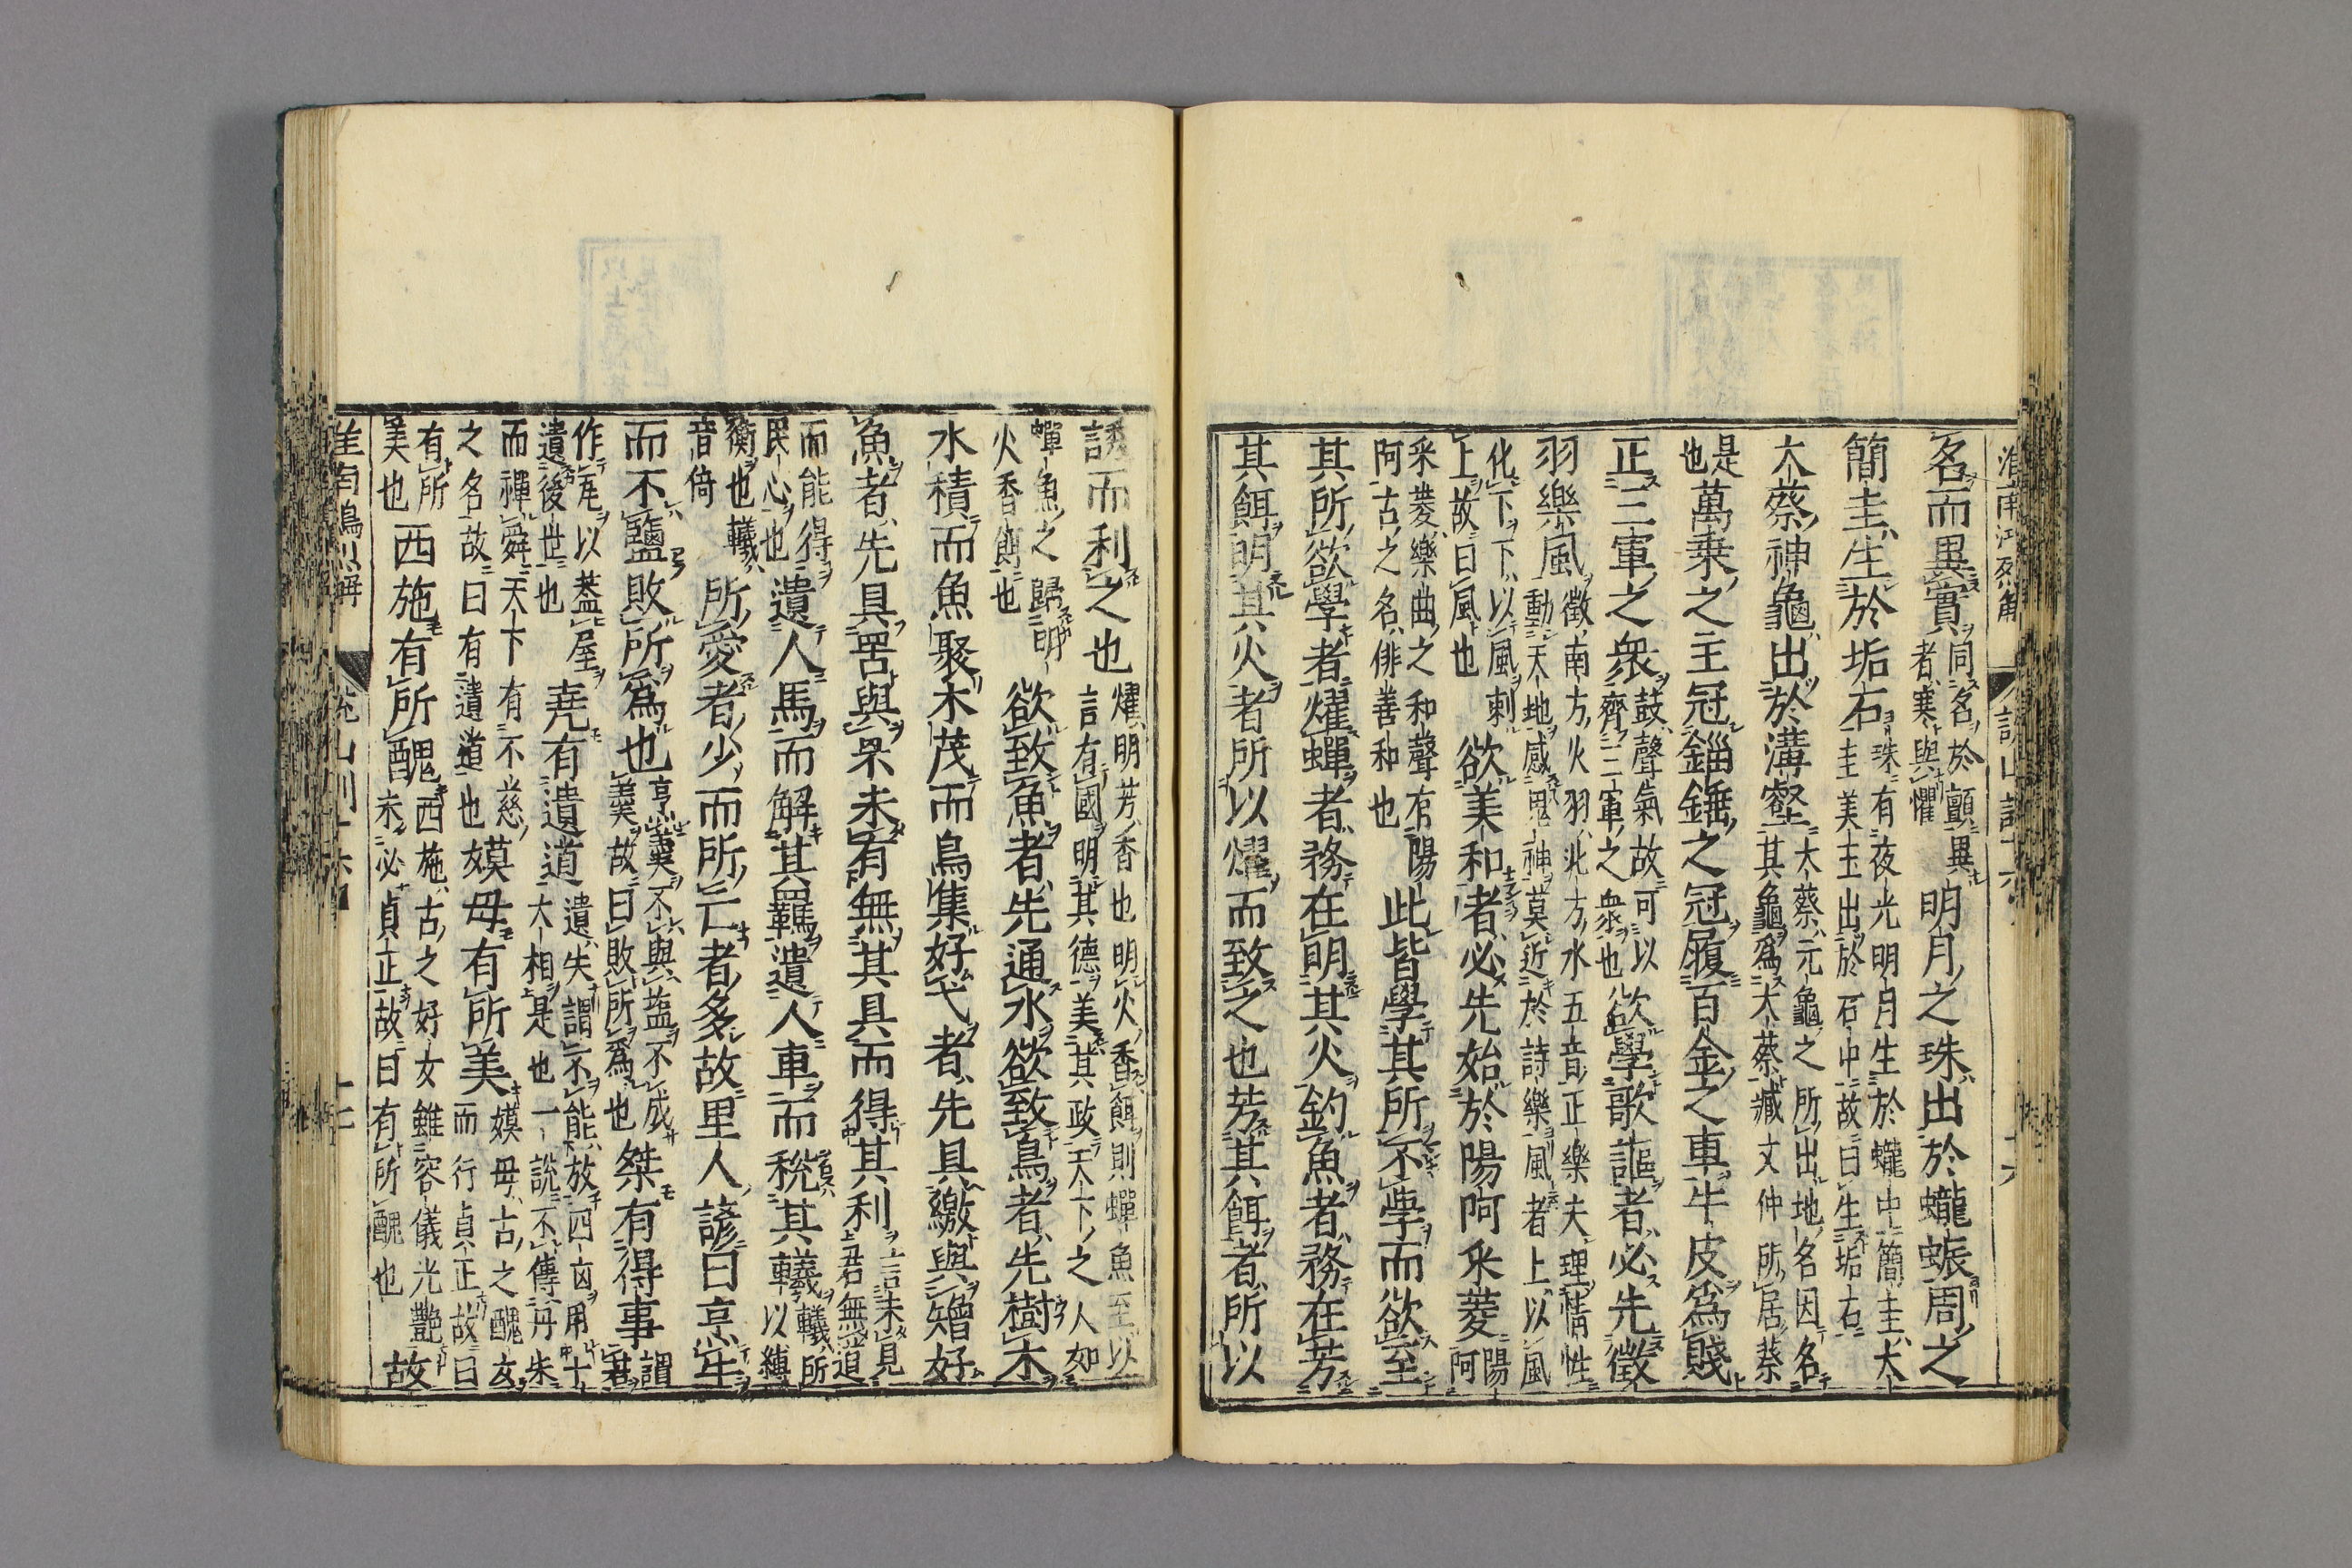 名而異實同名於顚異者寒與懼明月之珠出於蠬蜄周之
簡圭生於垢石珠有夜光明月生於蠬中簡圭大圭美玉出於石中故曰生垢石
大蔡神龜出於溝壑大蔡元龜之所出地名因名其龜爲大蔡臧文仲所居蔡
是也萬乗之主冠錙錘之冠履百金之車牛皮爲賤
正三軍之衆鼓聲氣故可以齊三軍之衆也欲學歌謳者必先徵
羽樂風徵南方火羽北方水五音正樂夫理情性動天地感鬼神莫近於詩樂風者上以風
化下下以風刺上故曰風也欲美和者必先始於陽阿采菱陽阿
采菱樂曲之和聲有陽阿古之名俳善和也此皆學其所不學而欲至
其所欲學者燿蟬者務在明其火釣魚者務在芳
其餌明其火者所以燿而致之也芳其餌者所以
誘而利之也燿明芳香也明火香餌則蟬魚至以言有國明其德美其政天下之人如
蟬魚之歸明火香餌也欲致魚者先通水欲致鳥者先樹木
水積而魚聚木茂而鳥集好弋者先具繳與矰好
魚者先具罟與罘未有無其具而得其利言未見君無道
而能得民心也遺人馬而解其羈遺人車而稅其轙轙所以縛
衡也轙音倚所愛者少而所亡者多故里人諺曰烹牛
而不鹽敗所爲也烹羹不與鹽不成羹故曰敗所爲也桀有得事謂君
作瓦以葢屋遺後世也堯有遺道遺失謂不能放四凶用十六相是也一說不傳丹朱
而禪舜天下有不慈之名故曰有遺道也嫫母有所美嫫母古之醜女而行貞正故曰
有所美也西施有所醜西施古之好女雖容儀光艷未必貞正故曰有所醜也故